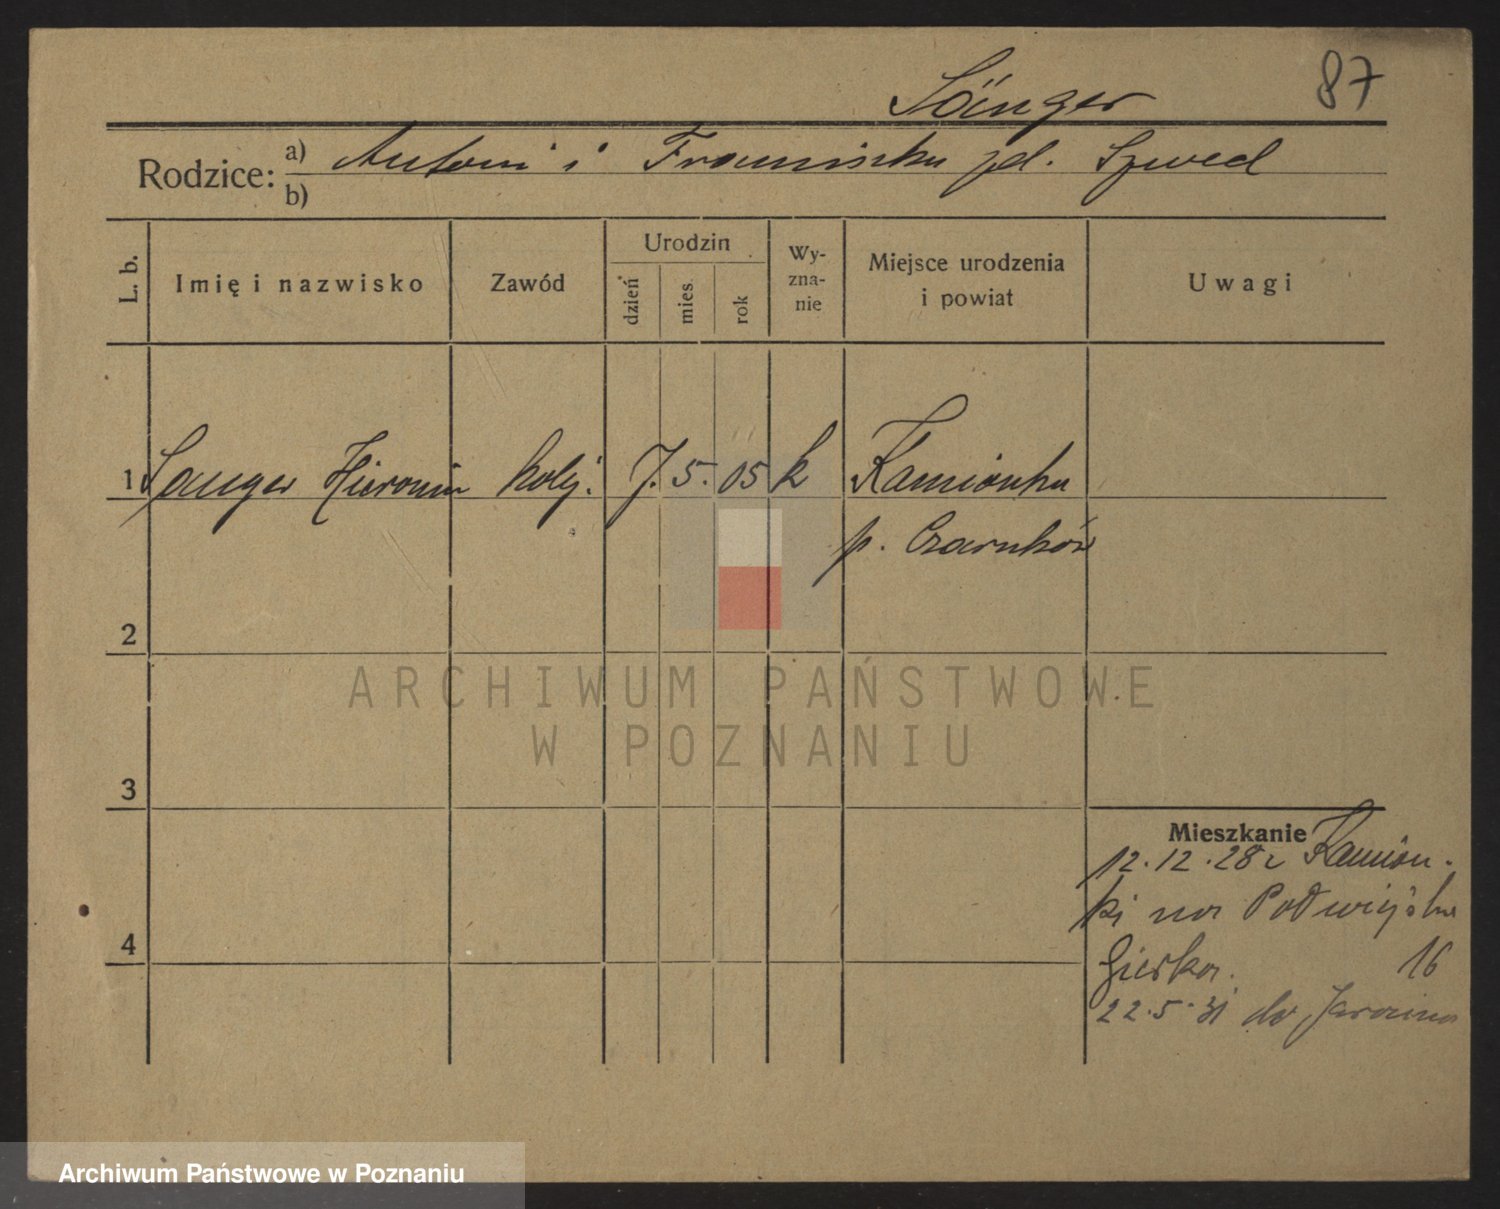 Sänger 87
Rodzice: a) Antoni i Franciszka zd. Szwed
b)
L. b. Imię i nazwisko Zawód Urodzin dzień mies. rok Wy-zna-nie Miejsce urodzenia i powiat Uwagi
1 Sanger Hieronim kolej. 7. 5. 05 k Kamionka
p. Czarnków
2
ARCHIWUM PAŃSTWOWE
W POZNANIU
3
Mieszkanie
12.12.28 z Kamion-
ki na
4
16
22.5.31 do Jarocina
Archiwum Państwowe w Poznaniu